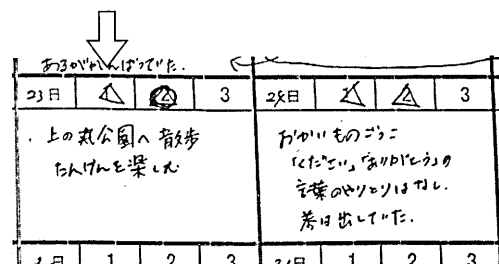 あるががんばっていた.
23日 1 2 3
24日 1 2 3
・上の丸公園へ 散歩
たんけんを楽しむ
おかいものごっこ
「ください」「ありがとう」の
言葉のやりとりはなし.
差は出していた.
日 1 2 3
日 1 2 3